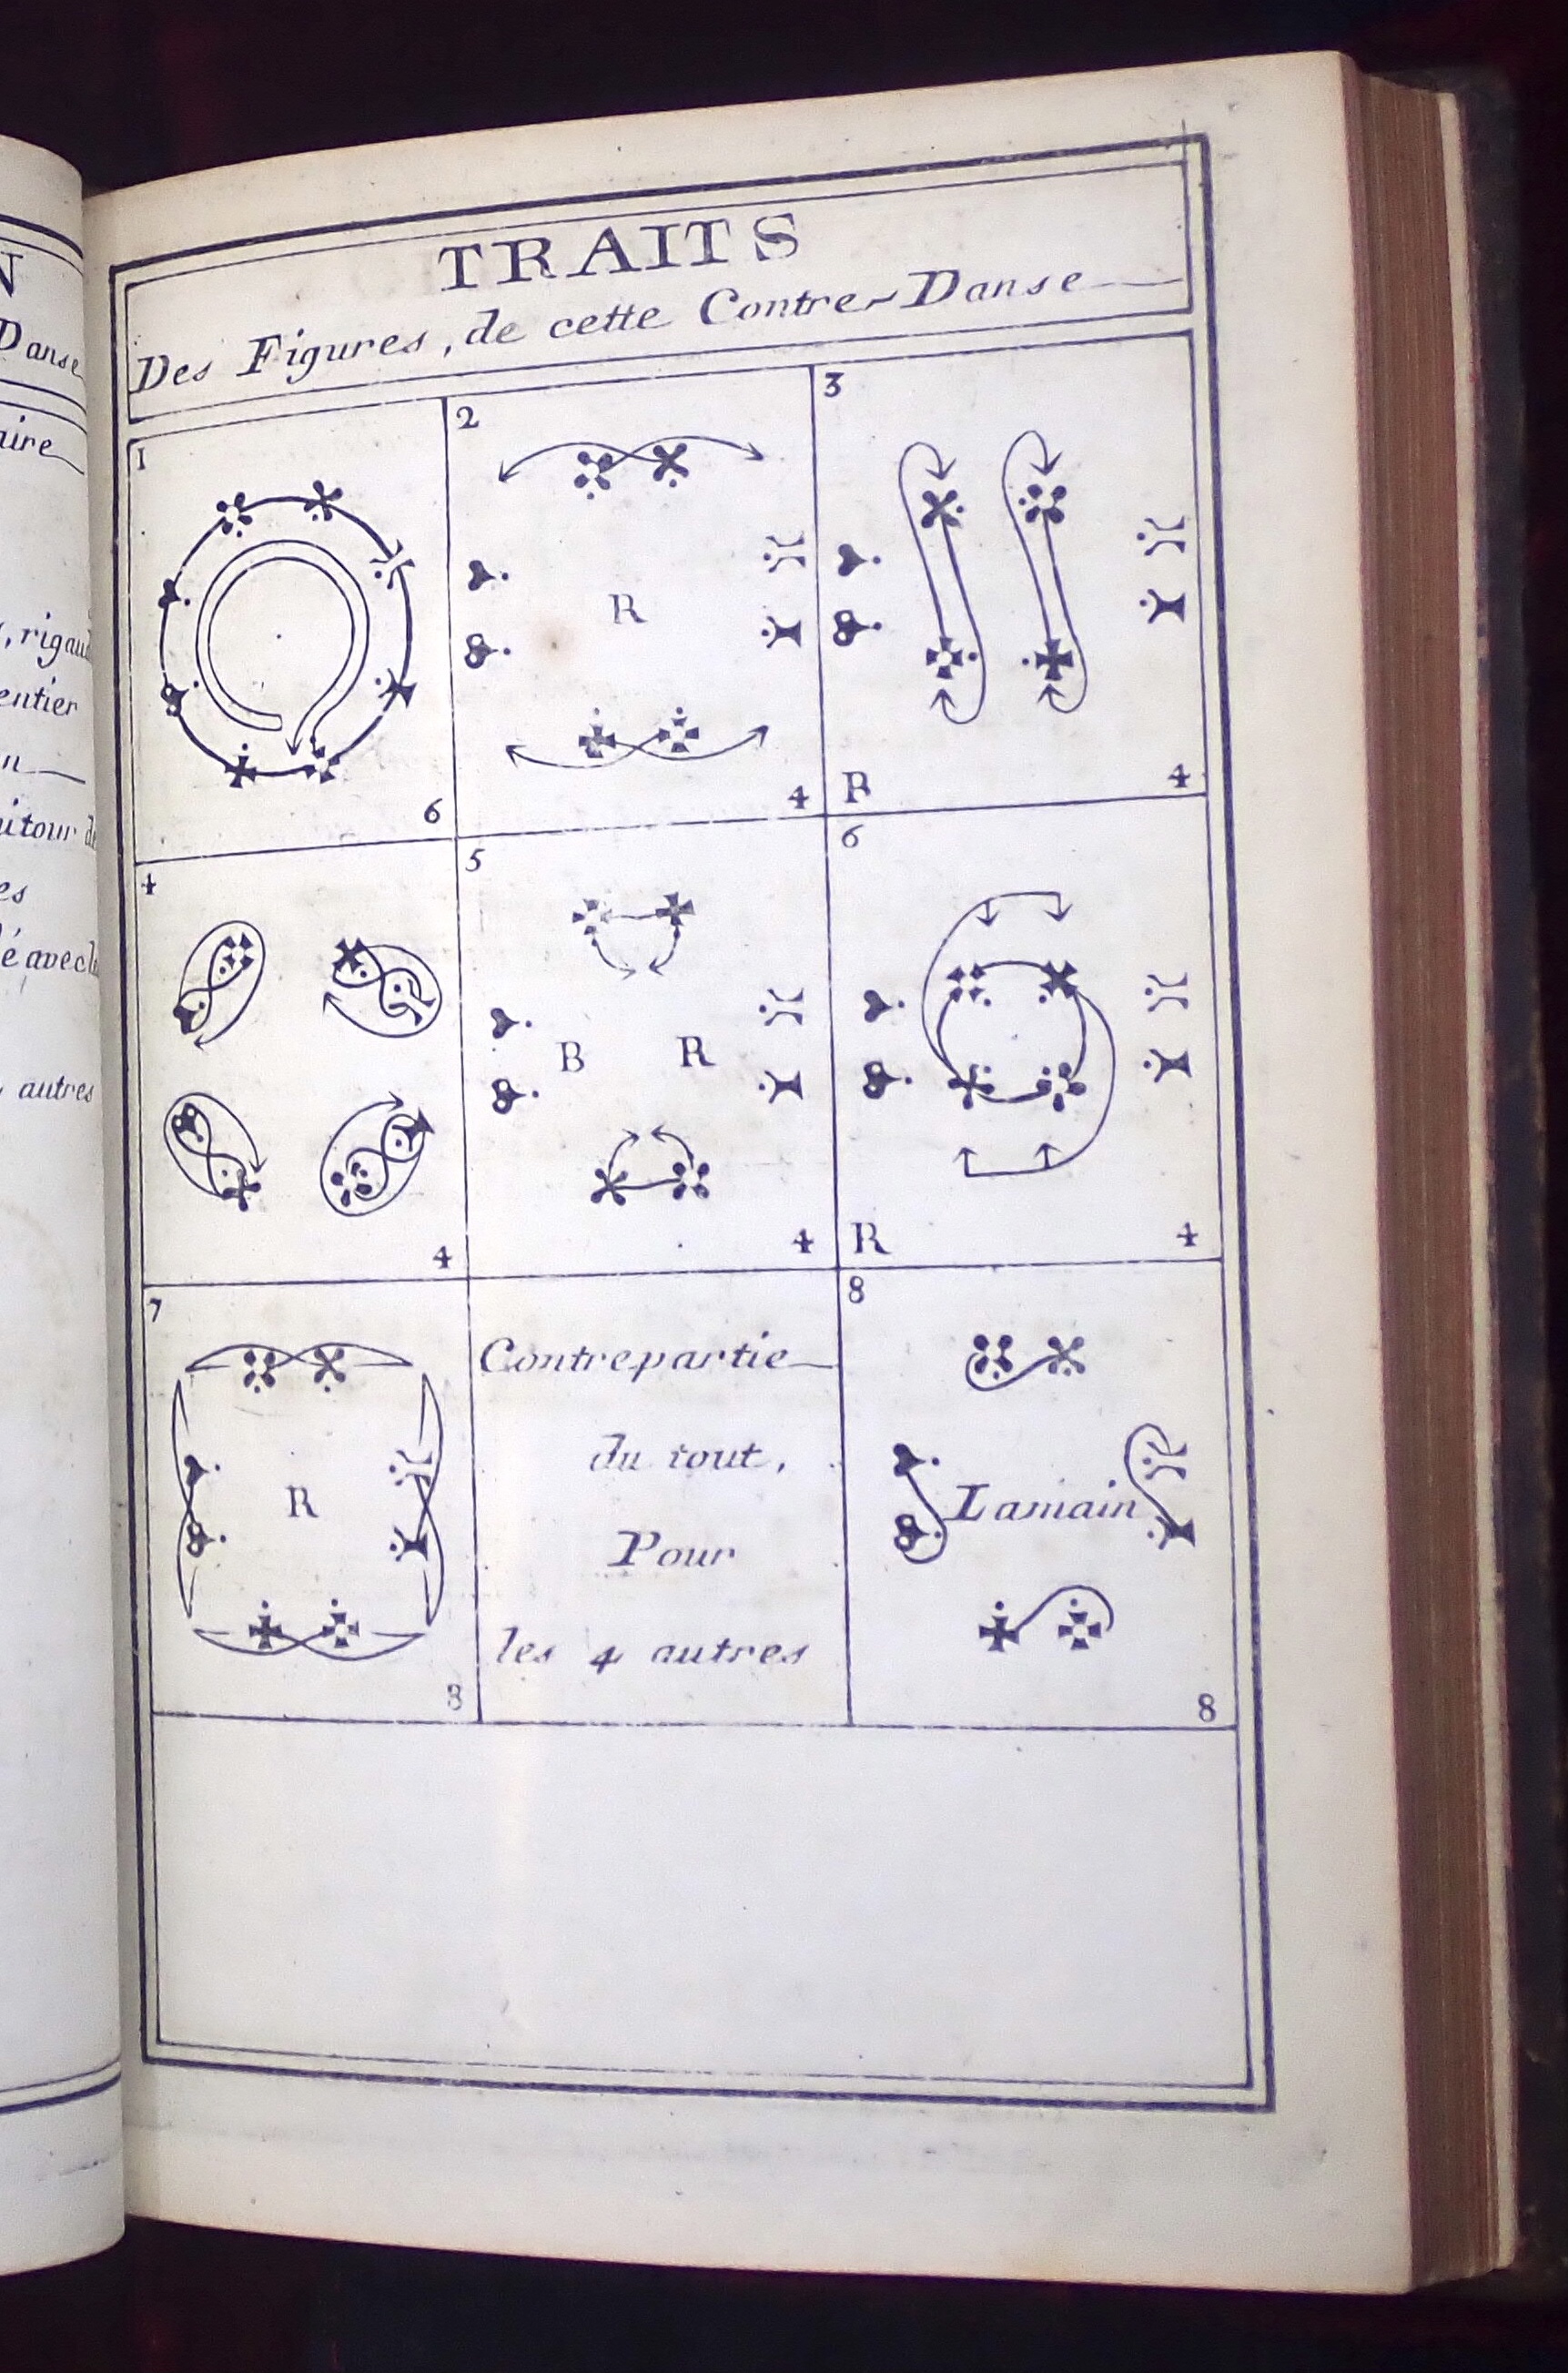 TRAITS
Des Figures, de cette Contre-Danse
1
6
2
R
4
3
R
4
4
4
5
B R
4
6
R
4
7
R
8
Contrepartie
du tout,
Pour
les 4 autres
8
Lamain
8
N
Danse
aire
rigaud
entier
n
autour de
es
é avec la
autres